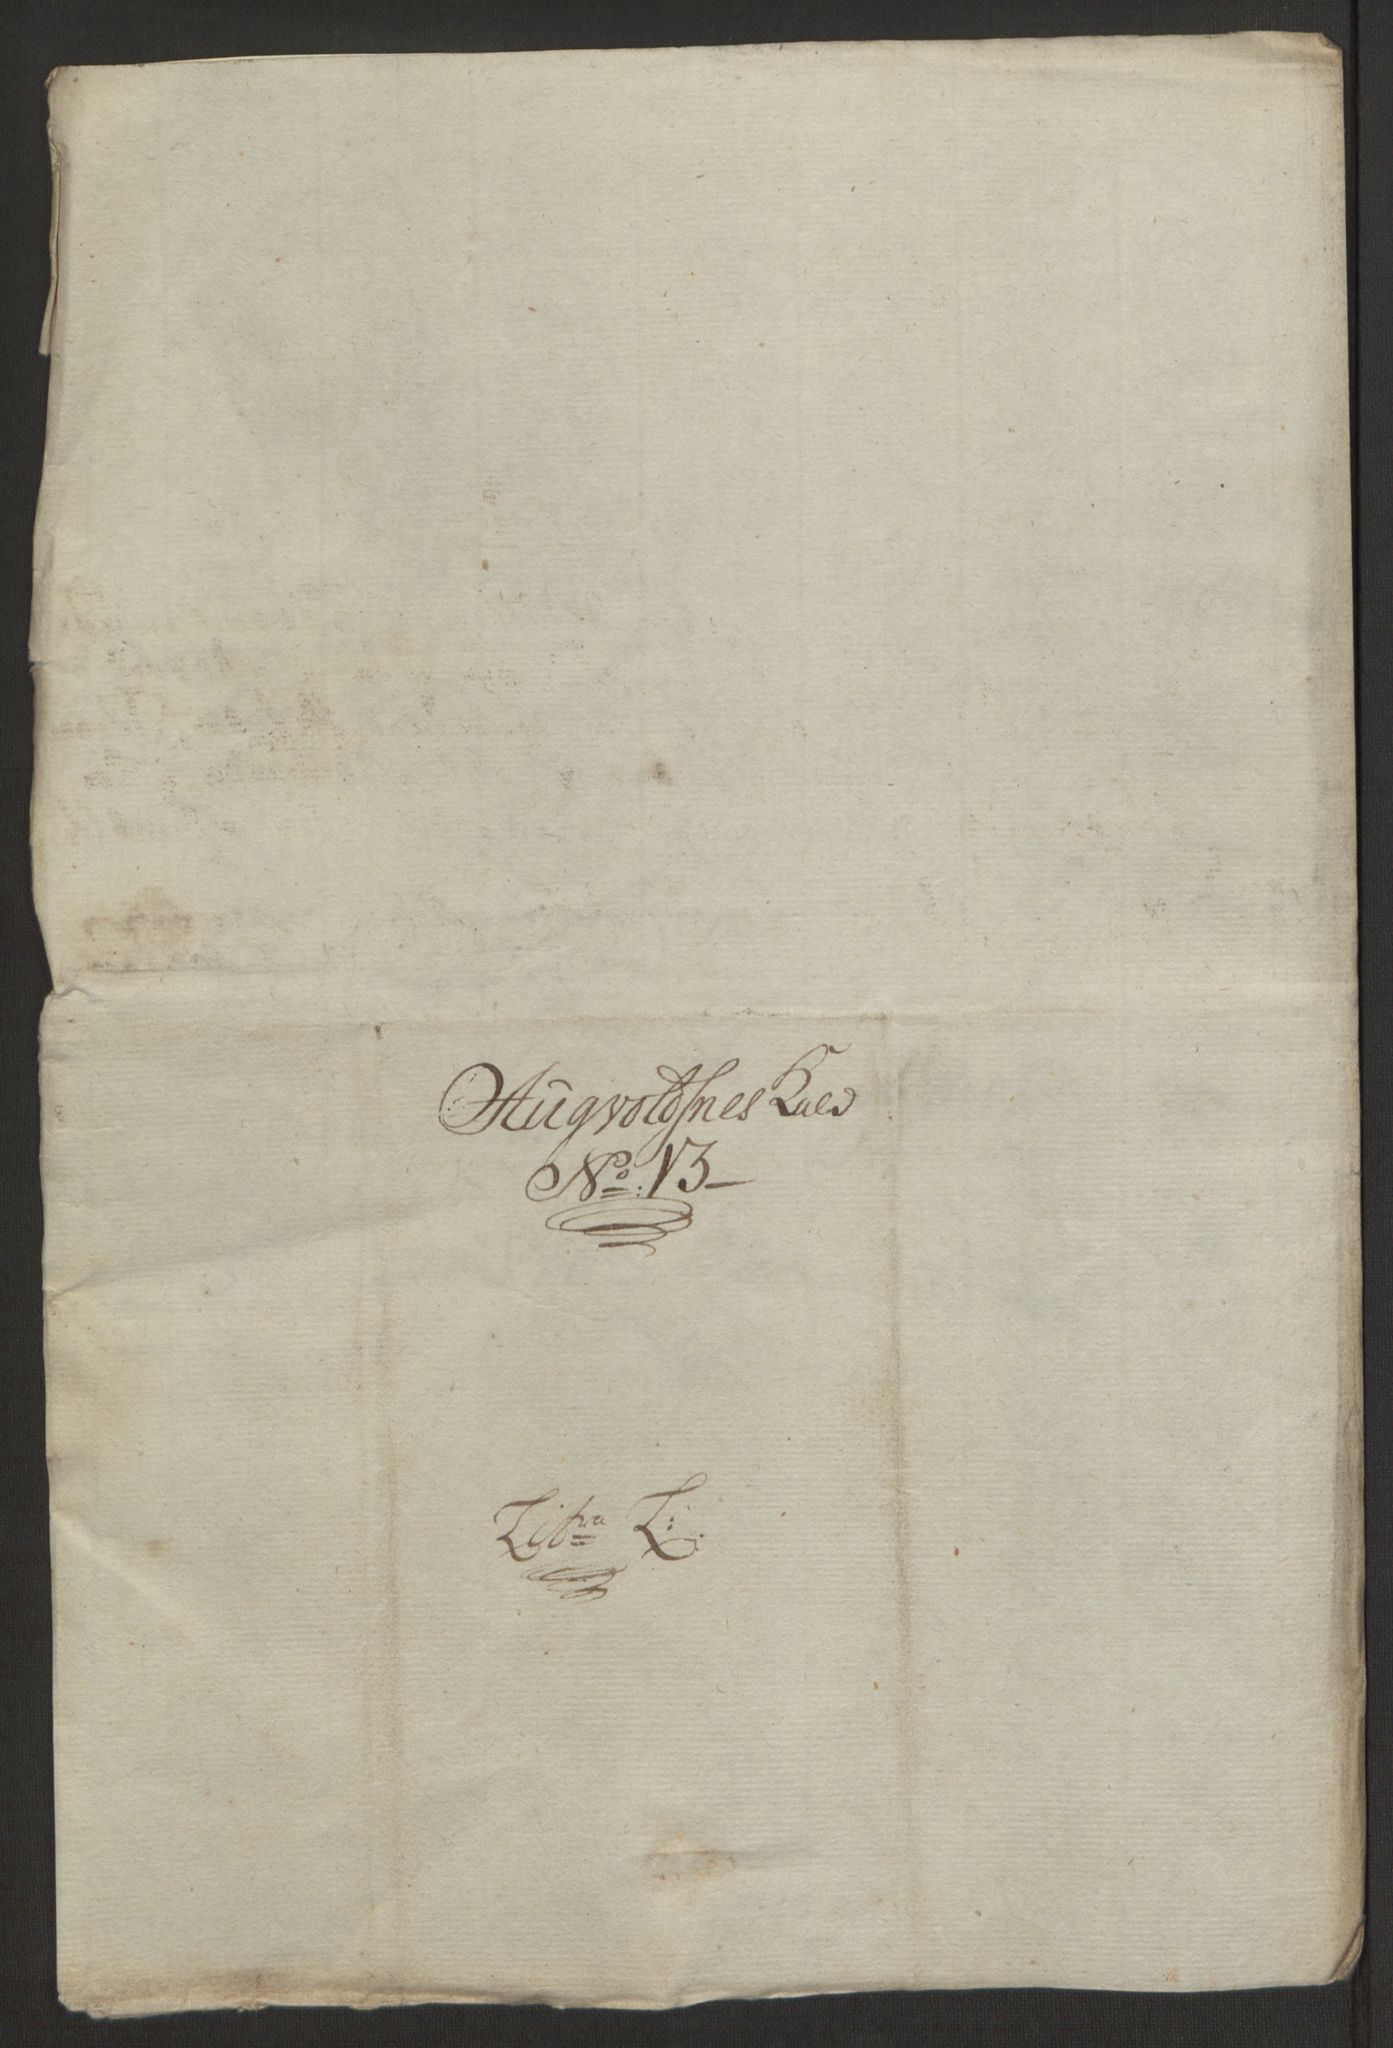 Augvoldsnes Kald
No. 13
Litra L: